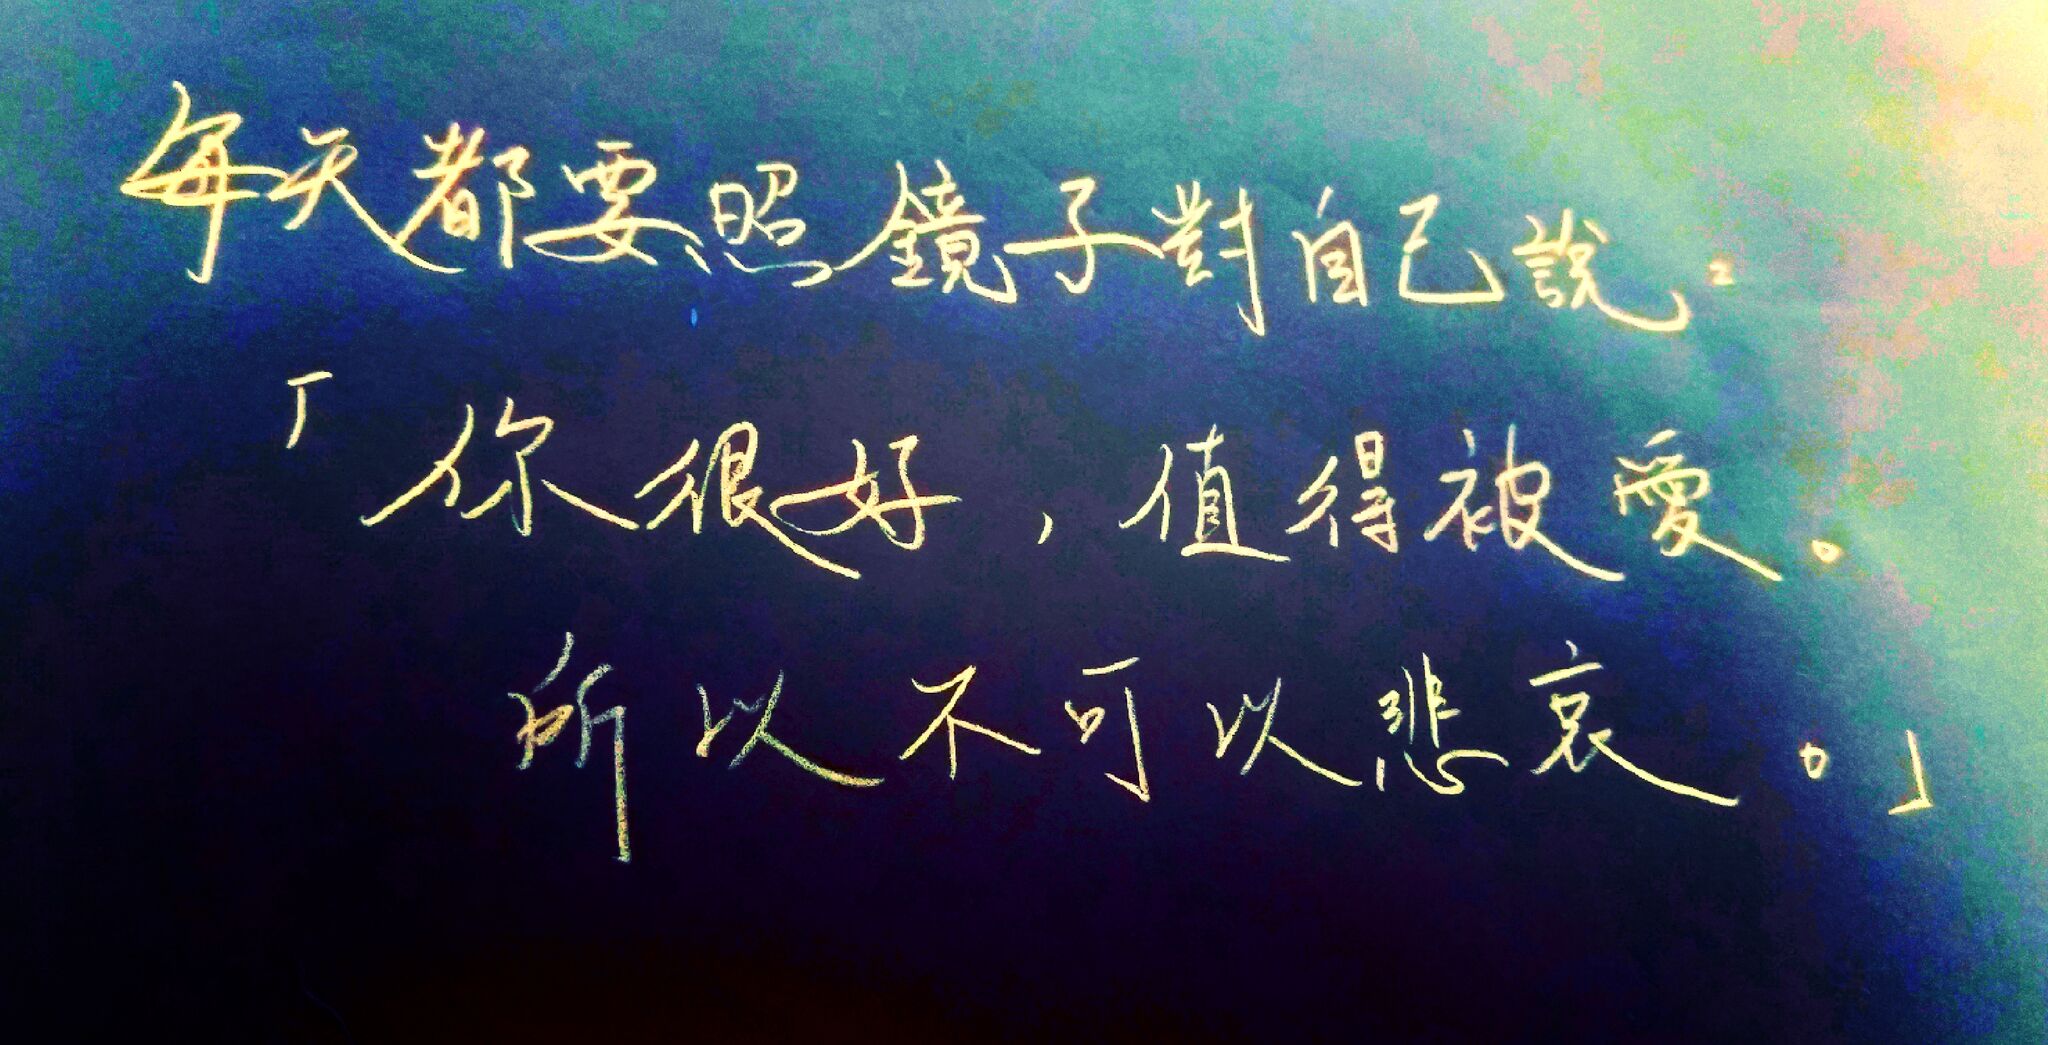 每天都要照鏡子對自己說：
「你很好，值得被愛。
所以不可以悲哀。」